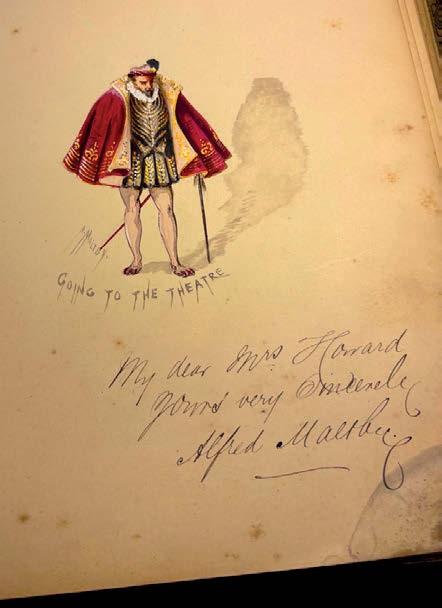 GOING TO THE THEATRE
My dear Mrs Howard
Yours very Sincerely
Alfred Maltby